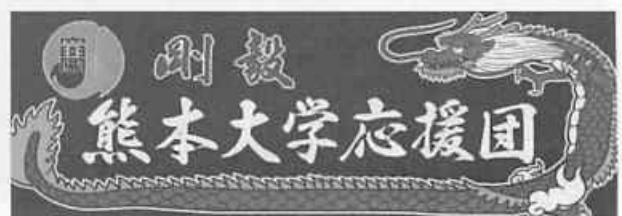 剛毅
熊本大学応援団